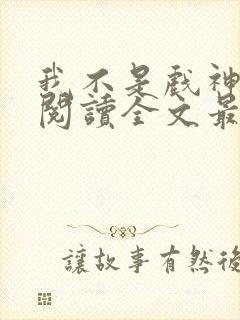 我不是戲神
閱讀全文最
讓故事有然後